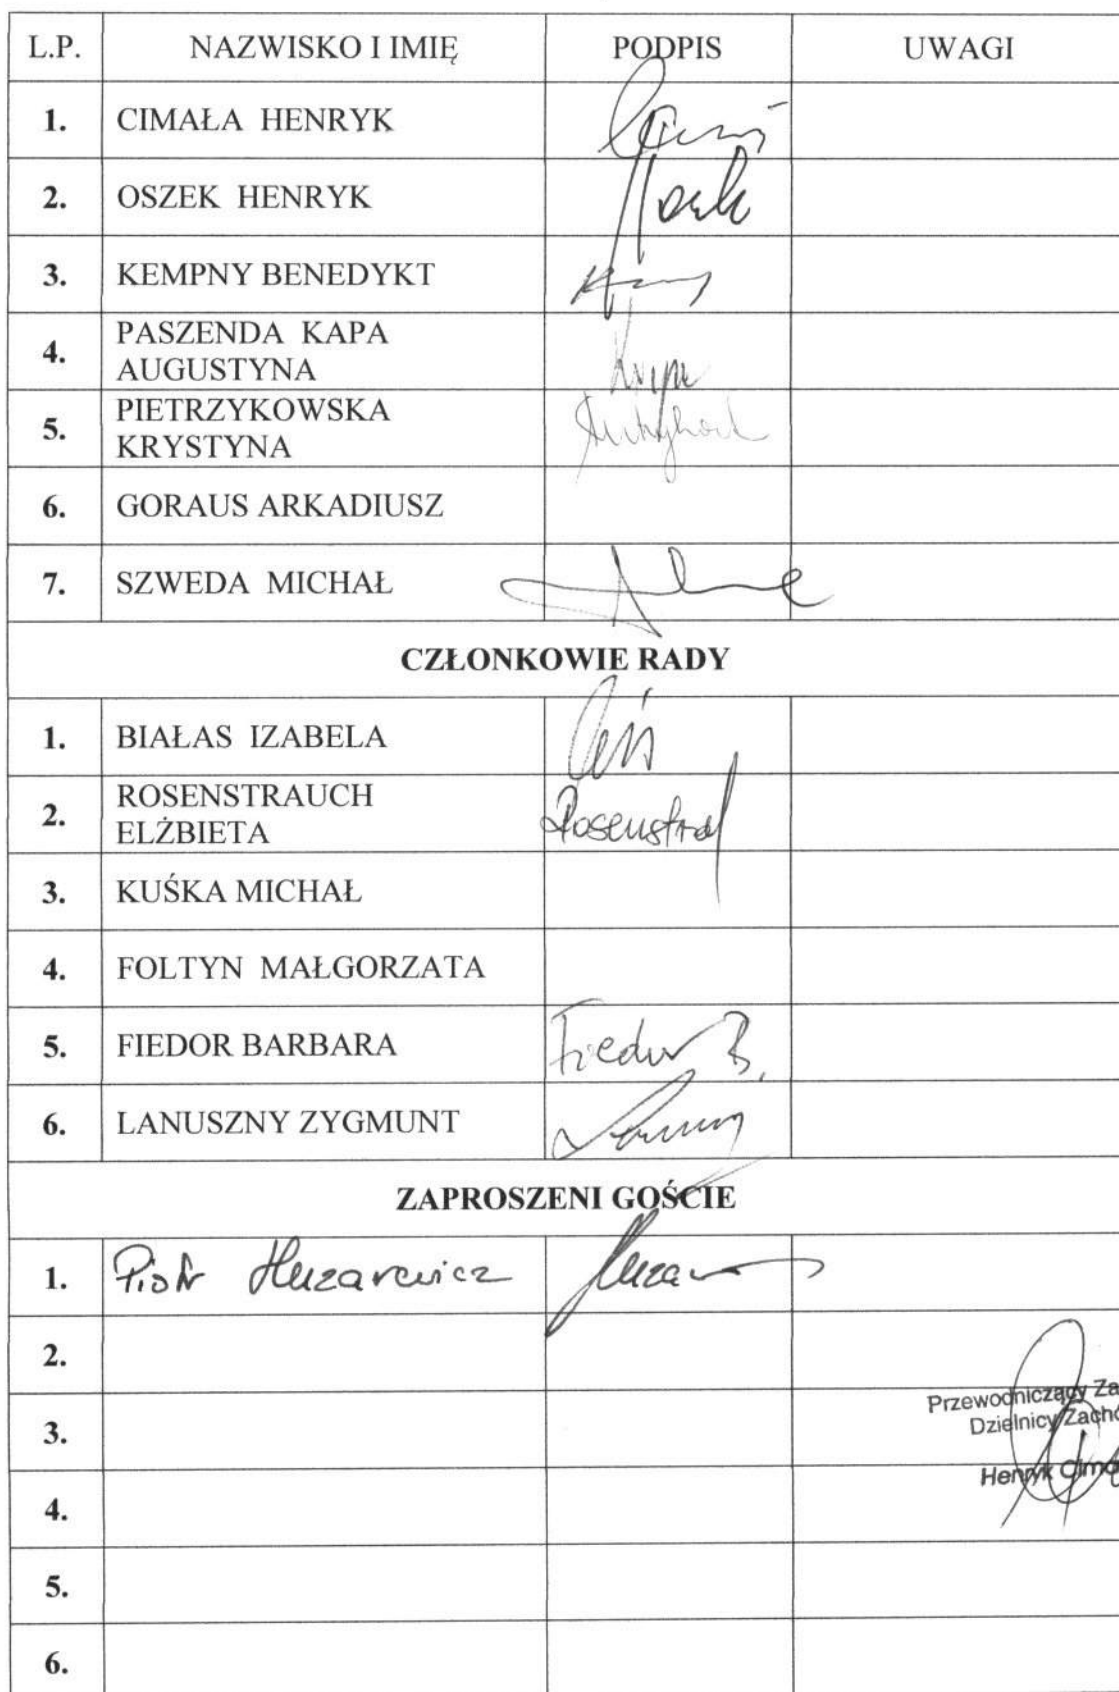 L.P. NAZWISKO I IMIĘ PODPIS UWAGI
1. CIMAŁA HENRYK
2. OSZEK HENRYK
3. KEMPNY BENEDYKT
4. PASZENDA KAPA
AUGUSTYNA
5. PIETRZYKOWSKA
KRYSTYNA
6. GORAUS ARKADIUSZ
7. SZWEDA MICHAŁ
CZŁONKOWIE RADY
1. BIAŁAS IZABELA
2. ROSENSTRAUCH
ELŻBIETA
3. KUŚKA MICHAŁ
4. FOLTYN MAŁGORZATA
5. FIEDOR BARBARA Fiedor B.
6. LANUSZNY ZYGMUNT
ZAPROSZENI GOŚCIE
1. Piotr Huzarewicz
2.
Przewodniczący Za
3. Dzielnicy Zacho
Henryk Cima
4.
5.
6.